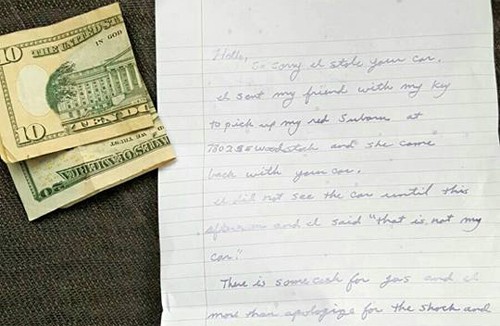 10
THE UNITED ST
IN GOD
10
TEN D
WE TRUST
S OF AMERICA
Hello, So sorry I stole your car.
I sent my friend with my key
to pick up my red Subaru at
7802 SE Woodstock and she came
back with your car.
I did not see the car until this
afternoon and I said "that is not my
car."
There is some cash for gas and I
more than apologize for the shock and